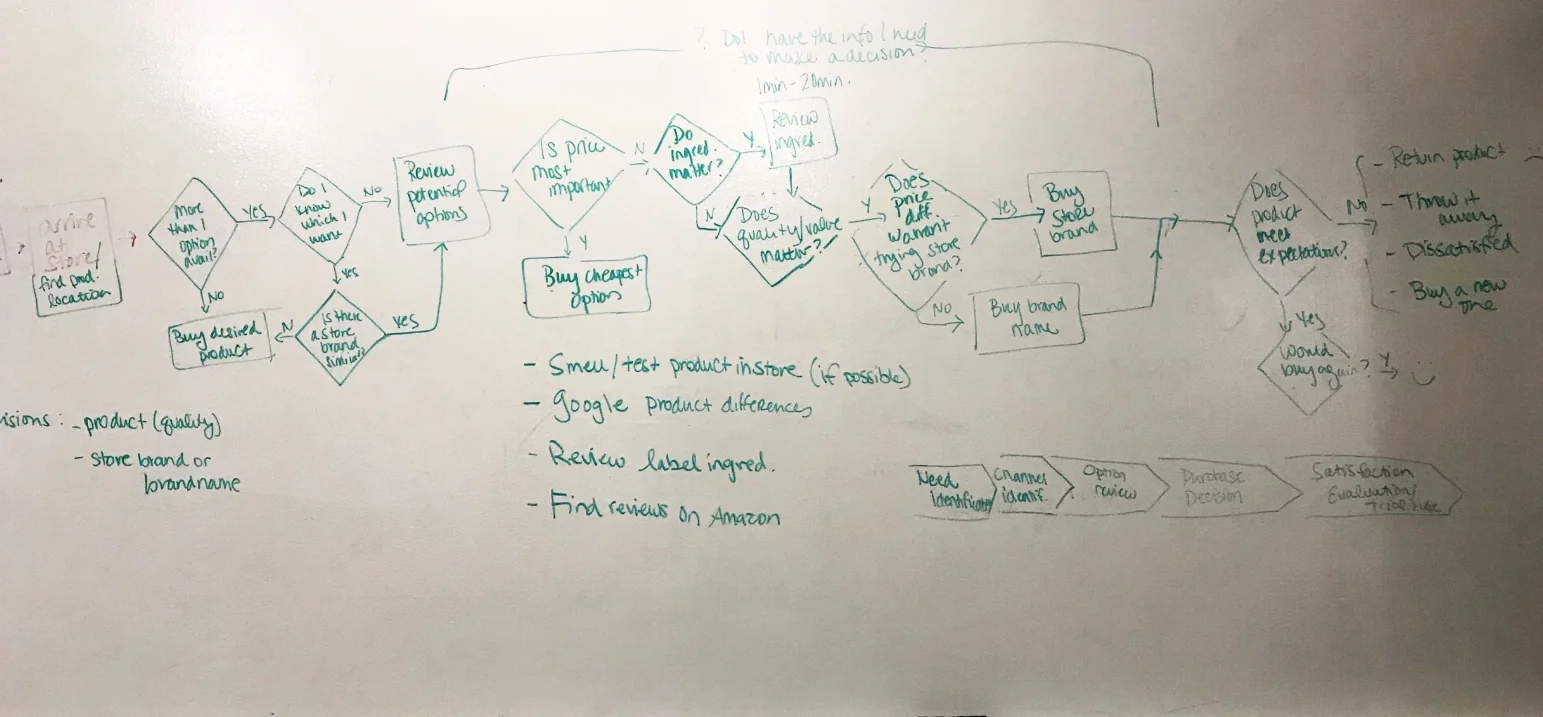 ? Do I have the info I need
to make a decision?
1min - 20min.
arrive
at
store/
find prod.
location
more
than 1
option
avail?
Yes
NO
Buy desired
product
Do I
know
which I
want
No
Yes
Is there
a store
brand
similar?
N
Yes
Review
potential
options
Is price
most
important
N
Y
Buy cheapest
option
Do
ingred.
matter?
Y
N
Review
ingred.
Does
quality/value
matter?
Y
Does
price
diff.
warrant
trying store
brand?
Yes
No
Buy
store
brand
Buy brand
name
Does
product
meet
expectations?
No
- Return product
- Throw it
away
- Dissatisfied
- Buy a new
one
Yes
Would
buy again?
Y
isions: - product (quality)
- store brand or
brand name
- Smell/test product in store (if possible)
- Google product differences
- Review label ingred.
- Find reviews on Amazon
Need
identification
Channel
identif.
Option
review
Purchase
Decision
Satisfaction
Evaluation/